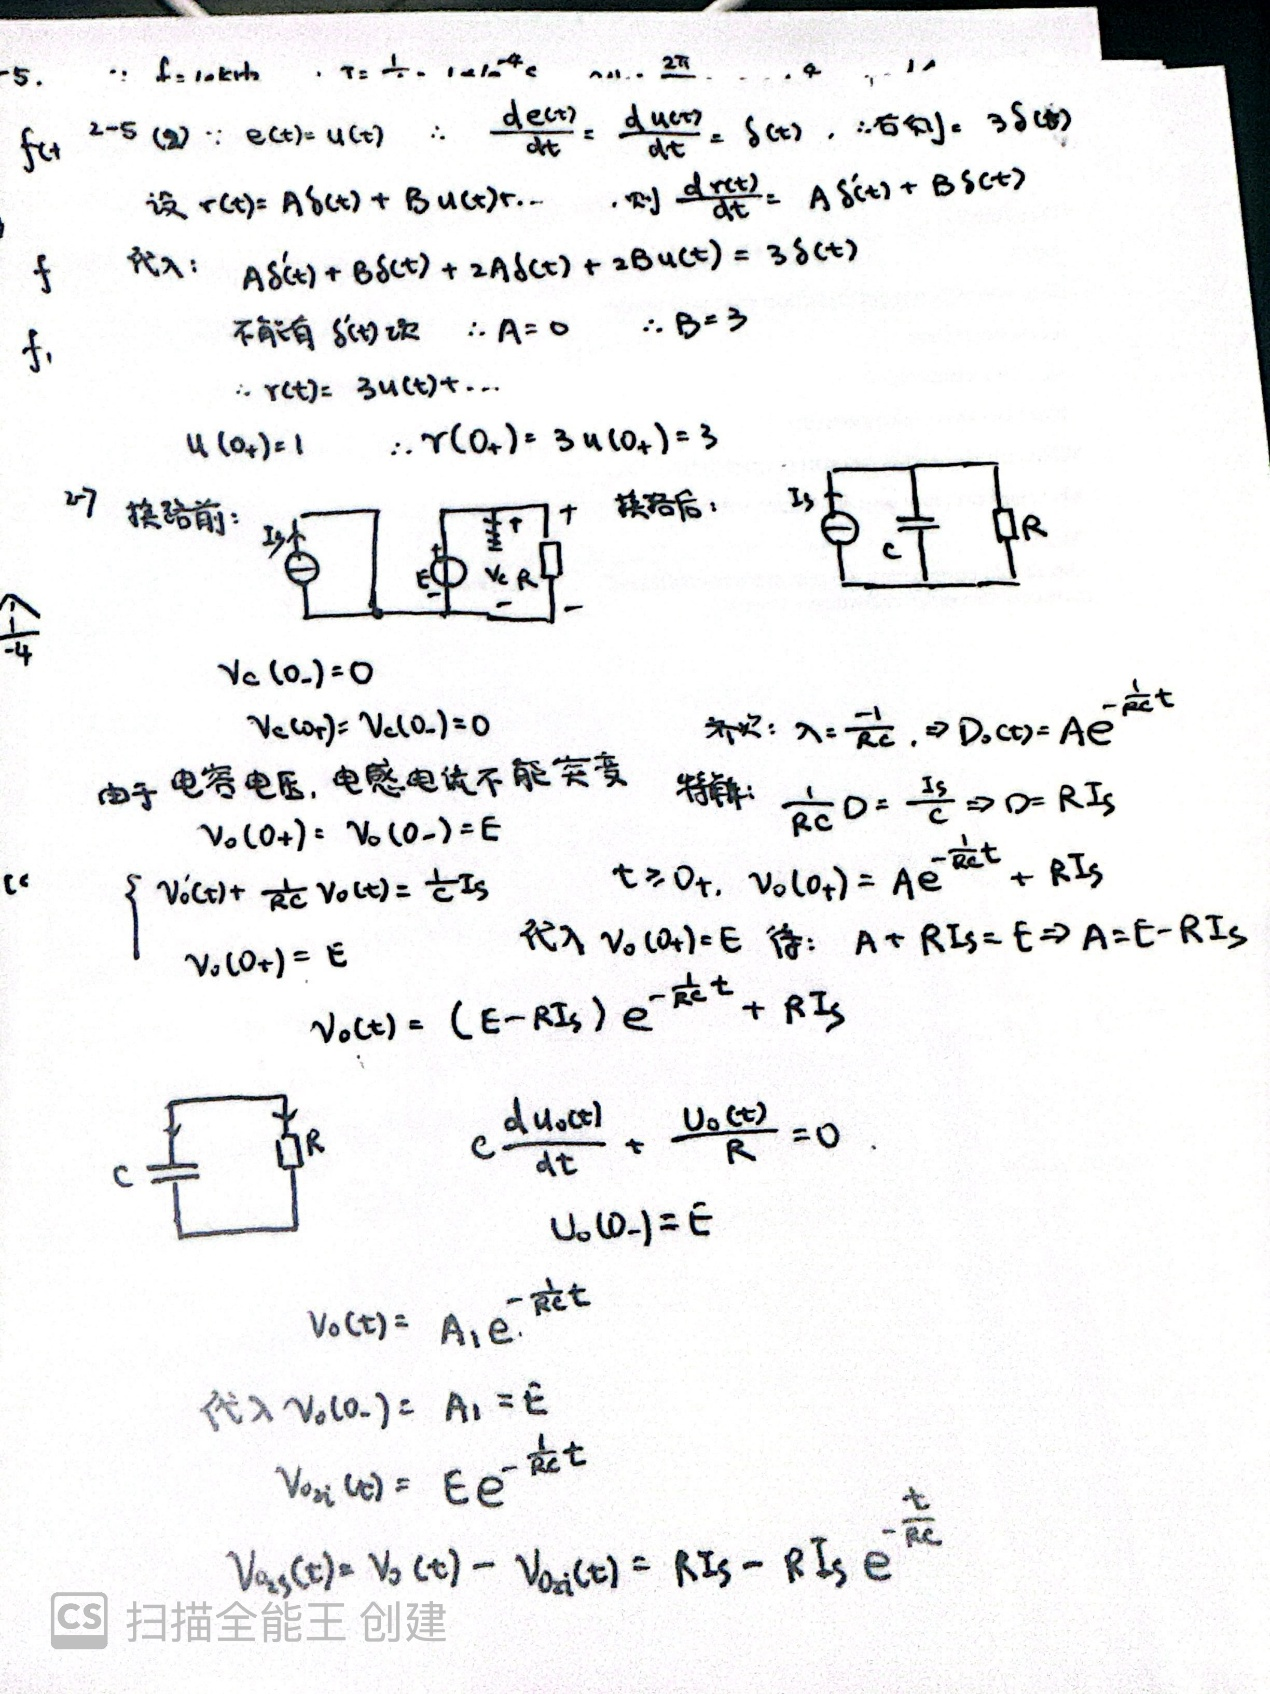 -5. ∵ f=10kHz
2-5 (2) ∵ e(t)=u(t) ∴ de(t)/dt = du(t)/dt = δ(t). ∴右侧= 3δ(t)
f(t
设 r(t)= Aδ(t) + Bu(t)+... . 则 dr(t)/dt = Aδ'(t) + Bδ(t)
f 代入: Aδ'(t) + Bδ(t) + 2Aδ(t) + 2Bu(t) = 3δ(t)
f₁ 不能有 δ'(t)次 ∴ A=0 ∴ B=3
∴ r(t)= 3u(t)+...
u(0₊)=1 ∴ r(0₊)= 3u(0₊)=3
2-7 换路前: 换路后:
Is E + − + Vc − R + −
Is C R
-4
Vc(0₋)=0
Vc(0₊)= Vc(0₋)=0
齐次: λ= -1/RC . ⇒ D₀(t)= Ae^(-1/RC t)
由于 电容电压, 电感电流不能突变
特解: 1/RC D = Is/C ⇒ D= RIs
V₀(0+)= V₀(0-)=E
{ V₀'(t)+ 1/RC V₀(t)= 1/C Is
t≥0+. V₀(0+)= Ae^(-1/RC t) + RIs
V₀(0+)= E
代入 V₀(0+)=E 得: A+ RIs= E ⇒ A=E-RIs
V₀(t)= (E-RIs) e^(-1/RC t) + RIs
C R
C du₀(t)/dt + U₀(t)/R =0
U₀(0-)=E
V₀(t)= A₁e^(-1/RC t)
代入 V₀(0-)= A₁ =E
V₀zi(t)= Ee^(-1/RC t)
V₀zs(t)= V₀(t) − V₀zi(t)= RIs − RIs e^(-t/RC)
CS 扫描全能王 创建